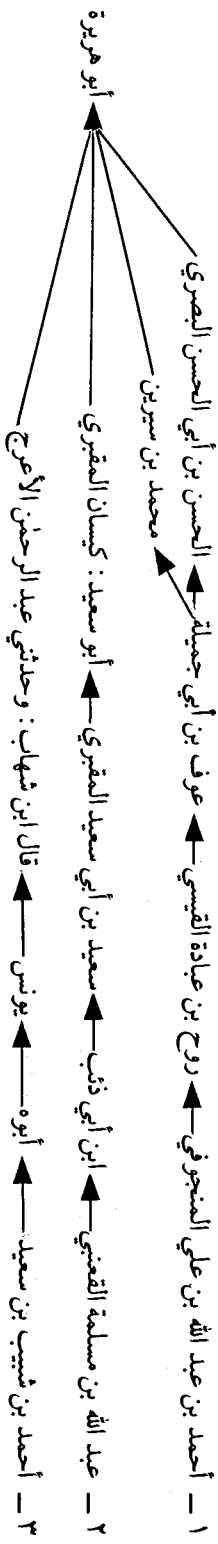 ١ ـ أحمد بن عبد الله بن علي المنجوفي
روح بن عبادة القيسي
عوف بن أبي جميلة
الحسن بن أبي الحسن البصري
محمد بن سيرين
٢ ـ عبد الله بن مسلمة القعنبي
ابن أبي ذئب
سعيد بن أبي سعيد المقبري
أبو سعيد : كيسان المقبري
٣ ـ أحمد بن شبيب بن سعيد
أبوه
يونس
قال ابن شهاب : وحدثني عبد الرحمٰن الأعرج
أبو هريرة